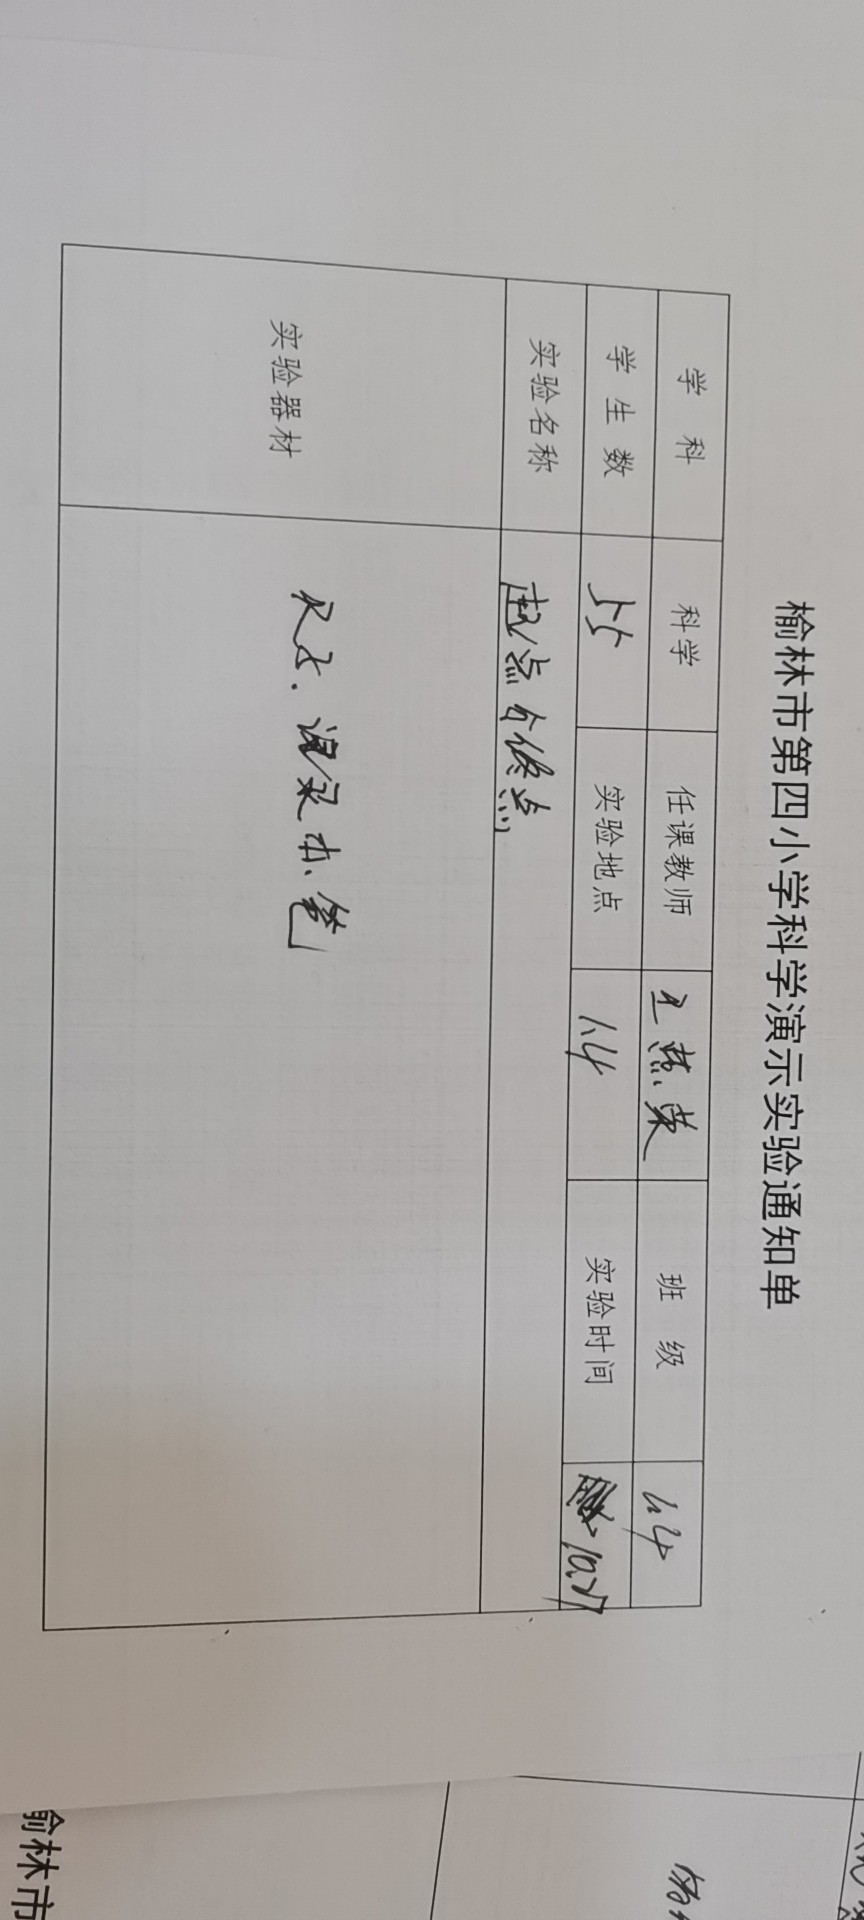 榆林市第四小学科学演示实验通知单
学 科 科学 任课教师 班 级 1.4
学 生 数 55 实验地点 1.4 实验时间 10.27
实验名称 起点和终点
实验器材 尺子、记录本、笔
榆林市